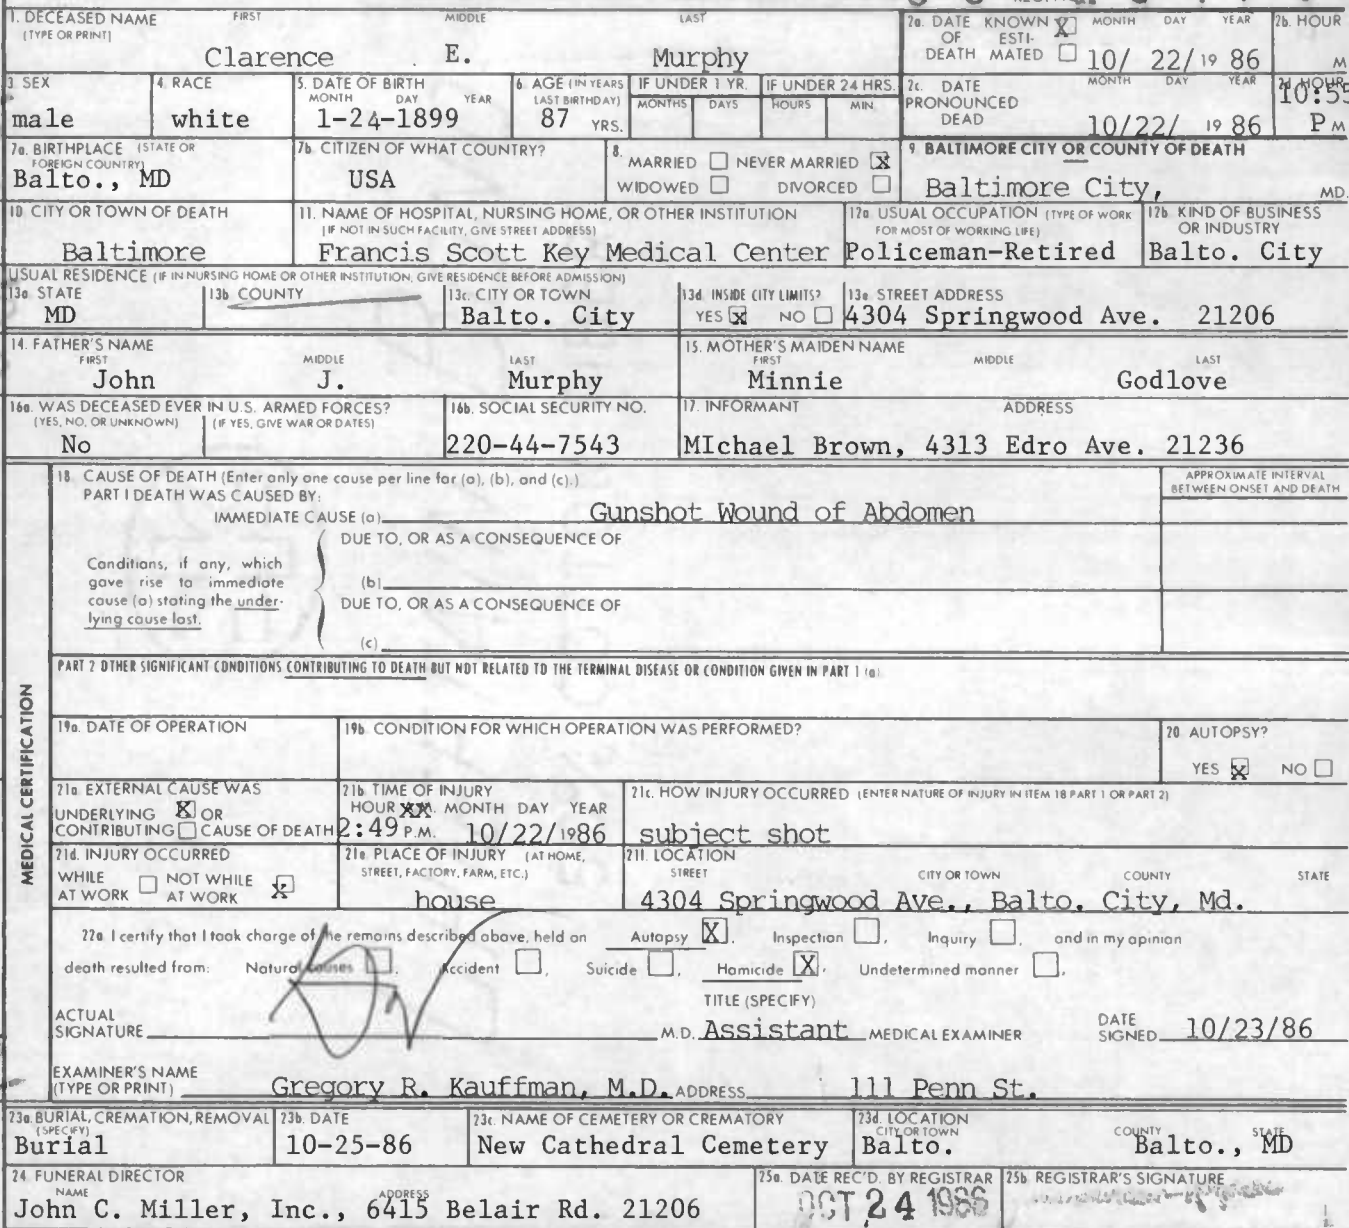 1. DECEASED NAME FIRST MIDDLE LAST
(TYPE OR PRINT)
Clarence E. Murphy
2a. DATE KNOWN X MONTH DAY YEAR
OF ESTI-
DEATH MATED 10/ 22/ 19 86
2b. HOUR
M
3. SEX
male
4. RACE
white
5. DATE OF BIRTH
MONTH DAY YEAR
1-24-1899
6. AGE (IN YEARS
LAST BIRTHDAY)
87 YRS.
IF UNDER 1 YR.
MONTHS DAYS
IF UNDER 24 HRS.
HOURS MIN.
2c. DATE MONTH DAY YEAR
PRONOUNCED
DEAD 10/22/ 19 86
2d HOUR
10:55
P M
7a. BIRTHPLACE (STATE OR
FOREIGN COUNTRY)
Balto., MD
7b. CITIZEN OF WHAT COUNTRY?
USA
8.
MARRIED NEVER MARRIED X
WIDOWED DIVORCED
9. BALTIMORE CITY OR COUNTY OF DEATH
Baltimore City, MD.
10. CITY OR TOWN OF DEATH
Baltimore
11. NAME OF HOSPITAL, NURSING HOME, OR OTHER INSTITUTION
(IF NOT IN SUCH FACILITY, GIVE STREET ADDRESS)
Francis Scott Key Medical Center
12a. USUAL OCCUPATION (TYPE OF WORK
FOR MOST OF WORKING LIFE)
Policeman-Retired
12b. KIND OF BUSINESS
OR INDUSTRY
Balto. City
USUAL RESIDENCE (IF IN NURSING HOME OR OTHER INSTITUTION, GIVE RESIDENCE BEFORE ADMISSION)
13a. STATE
MD
13b. COUNTY
13c. CITY OR TOWN
Balto. City
13d. INSIDE CITY LIMITS?
YES X NO
13e. STREET ADDRESS
4304 Springwood Ave. 21206
14. FATHER'S NAME
FIRST MIDDLE LAST
John J. Murphy
15. MOTHER'S MAIDEN NAME
FIRST MIDDLE LAST
Minnie Godlove
16a. WAS DECEASED EVER IN U.S. ARMED FORCES?
(YES, NO, OR UNKNOWN) (IF YES, GIVE WAR OR DATES)
No
16b. SOCIAL SECURITY NO.
220-44-7543
17. INFORMANT ADDRESS
MIchael Brown, 4313 Edro Ave. 21236
MEDICAL CERTIFICATION
18. CAUSE OF DEATH (Enter only one cause per line for (a), (b), and (c).)
PART I DEATH WAS CAUSED BY:
IMMEDIATE CAUSE (a) Gunshot Wound of Abdomen
APPROXIMATE INTERVAL
BETWEEN ONSET AND DEATH
DUE TO, OR AS A CONSEQUENCE OF
Conditions, if any, which
gave rise to immediate
cause (a) stating the under-
lying cause last.
(b)
DUE TO, OR AS A CONSEQUENCE OF
(c)
PART 2 OTHER SIGNIFICANT CONDITIONS CONTRIBUTING TO DEATH BUT NOT RELATED TO THE TERMINAL DISEASE OR CONDITION GIVEN IN PART 1 (a)
19a. DATE OF OPERATION
19b. CONDITION FOR WHICH OPERATION WAS PERFORMED?
20. AUTOPSY?
YES X NO
21a. EXTERNAL CAUSE WAS
UNDERLYING X OR
CONTRIBUTING CAUSE OF DEATH
21b. TIME OF INJURY
HOUR XX. MONTH DAY YEAR
2:49 P.M. 10/22/1986
21c. HOW INJURY OCCURRED (ENTER NATURE OF INJURY IN ITEM 18 PART 1 OR PART 2)
subject shot
21d. INJURY OCCURRED
WHILE NOT WHILE
AT WORK AT WORK X
21e. PLACE OF INJURY (AT HOME,
STREET, FACTORY, FARM, ETC.)
house
21f. LOCATION
STREET CITY OR TOWN COUNTY STATE
4304 Springwood Ave., Balto. City, Md.
22a. I certify that I took charge of the remains described above, held an Autopsy X, Inspection, Inquiry, and in my opinion
death resulted from: Natural causes, Accident, Suicide, Homicide X, Undetermined manner,
ACTUAL
SIGNATURE M.D.
TITLE (SPECIFY)
Assistant MEDICAL EXAMINER
DATE
SIGNED 10/23/86
EXAMINER'S NAME
(TYPE OR PRINT) Gregory R. Kauffman, M.D. ADDRESS 111 Penn St.
23a. BURIAL, CREMATION, REMOVAL
(SPECIFY)
Burial
23b. DATE
10-25-86
23c. NAME OF CEMETERY OR CREMATORY
New Cathedral Cemetery
23d. LOCATION
CITY OR TOWN COUNTY STATE
Balto. Balto., MD
24. FUNERAL DIRECTOR
NAME ADDRESS
John C. Miller, Inc., 6415 Belair Rd. 21206
25a. DATE REC'D. BY REGISTRAR
OCT 24 1986
25b. REGISTRAR'S SIGNATURE